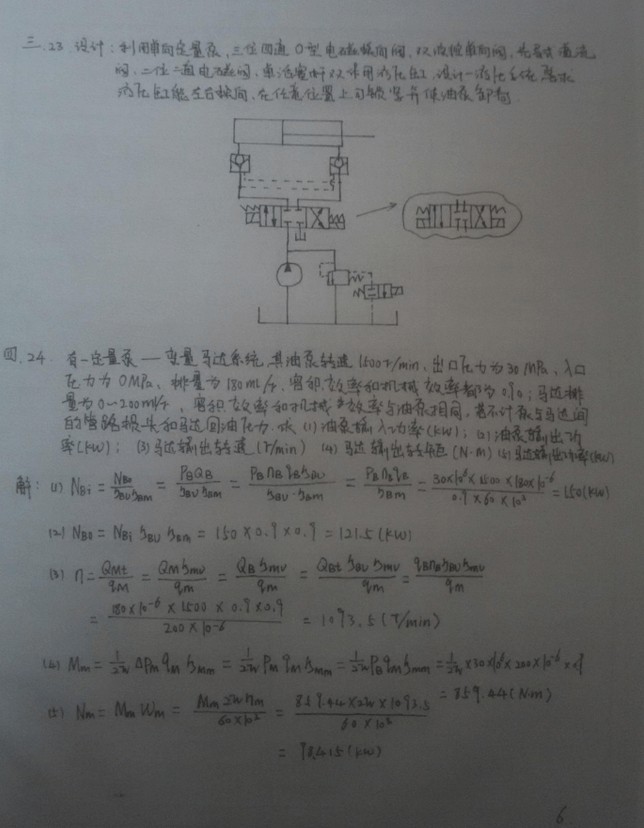 三.23 设计:利用单向定量泵,三位四通O型电磁换向阀,双液控单向阀,先导式溢流
阀,二位二通电磁阀,单活塞杆双作用液压缸,设计一液压系统要求
液压缸能左右换向,在任意位置上可锁紧并使油泵卸荷.
四.24 有一定量泵—变量马达系统,其油泵转速1500r/min,出口压力为30MPa,入口
压力为0MPa,排量为180ml/r,容积效率和机械效率都为0.9;马达排
量为0~200ml/r,容积效率和机械效率与油泵相同,若不计泵与马达间
的管路损失和马达回油压力.求(1)油泵输入功率(kW);(2)油泵输出功
率(kW);(3)马达输出转速(r/min)(4)马达输出转矩(N·m)(5)马达输出功率(kW)
解:(1) NBi = NB0/ηBVηBm = PBQB/ηBVηBm = PBnBqBηBV/ηBV·ηBm = PBnBqB/ηBm = 30×10⁶×1500×180×10⁻⁶/0.9×60×10³ = 150(kW)
(2) NB0 = NBi ηBV ηBm = 150×0.9×0.9 = 121.5(kW)
(3) n = QMt/qM = QMηmv/qm = QBηmv/qm = QBtηBVηmv/qm = qBnBηBVηmv/qm
= 180×10⁻⁶×1500×0.9×0.9/200×10⁻⁶ = 1093.5(r/min)
(4) Mm = 1/2π ΔPm qm ηmm = 1/2π Pm qm ηmm = 1/2π PB qm ηmm = 1/2π ×30×10⁶×200×10⁻⁶×0.9
= 859.44(N·m)
(5) Nm = Mm Wm = Mm 2π nm/60×10³ = 859.44×2π×1093.5/60×10³
= 98.415(kW)
6